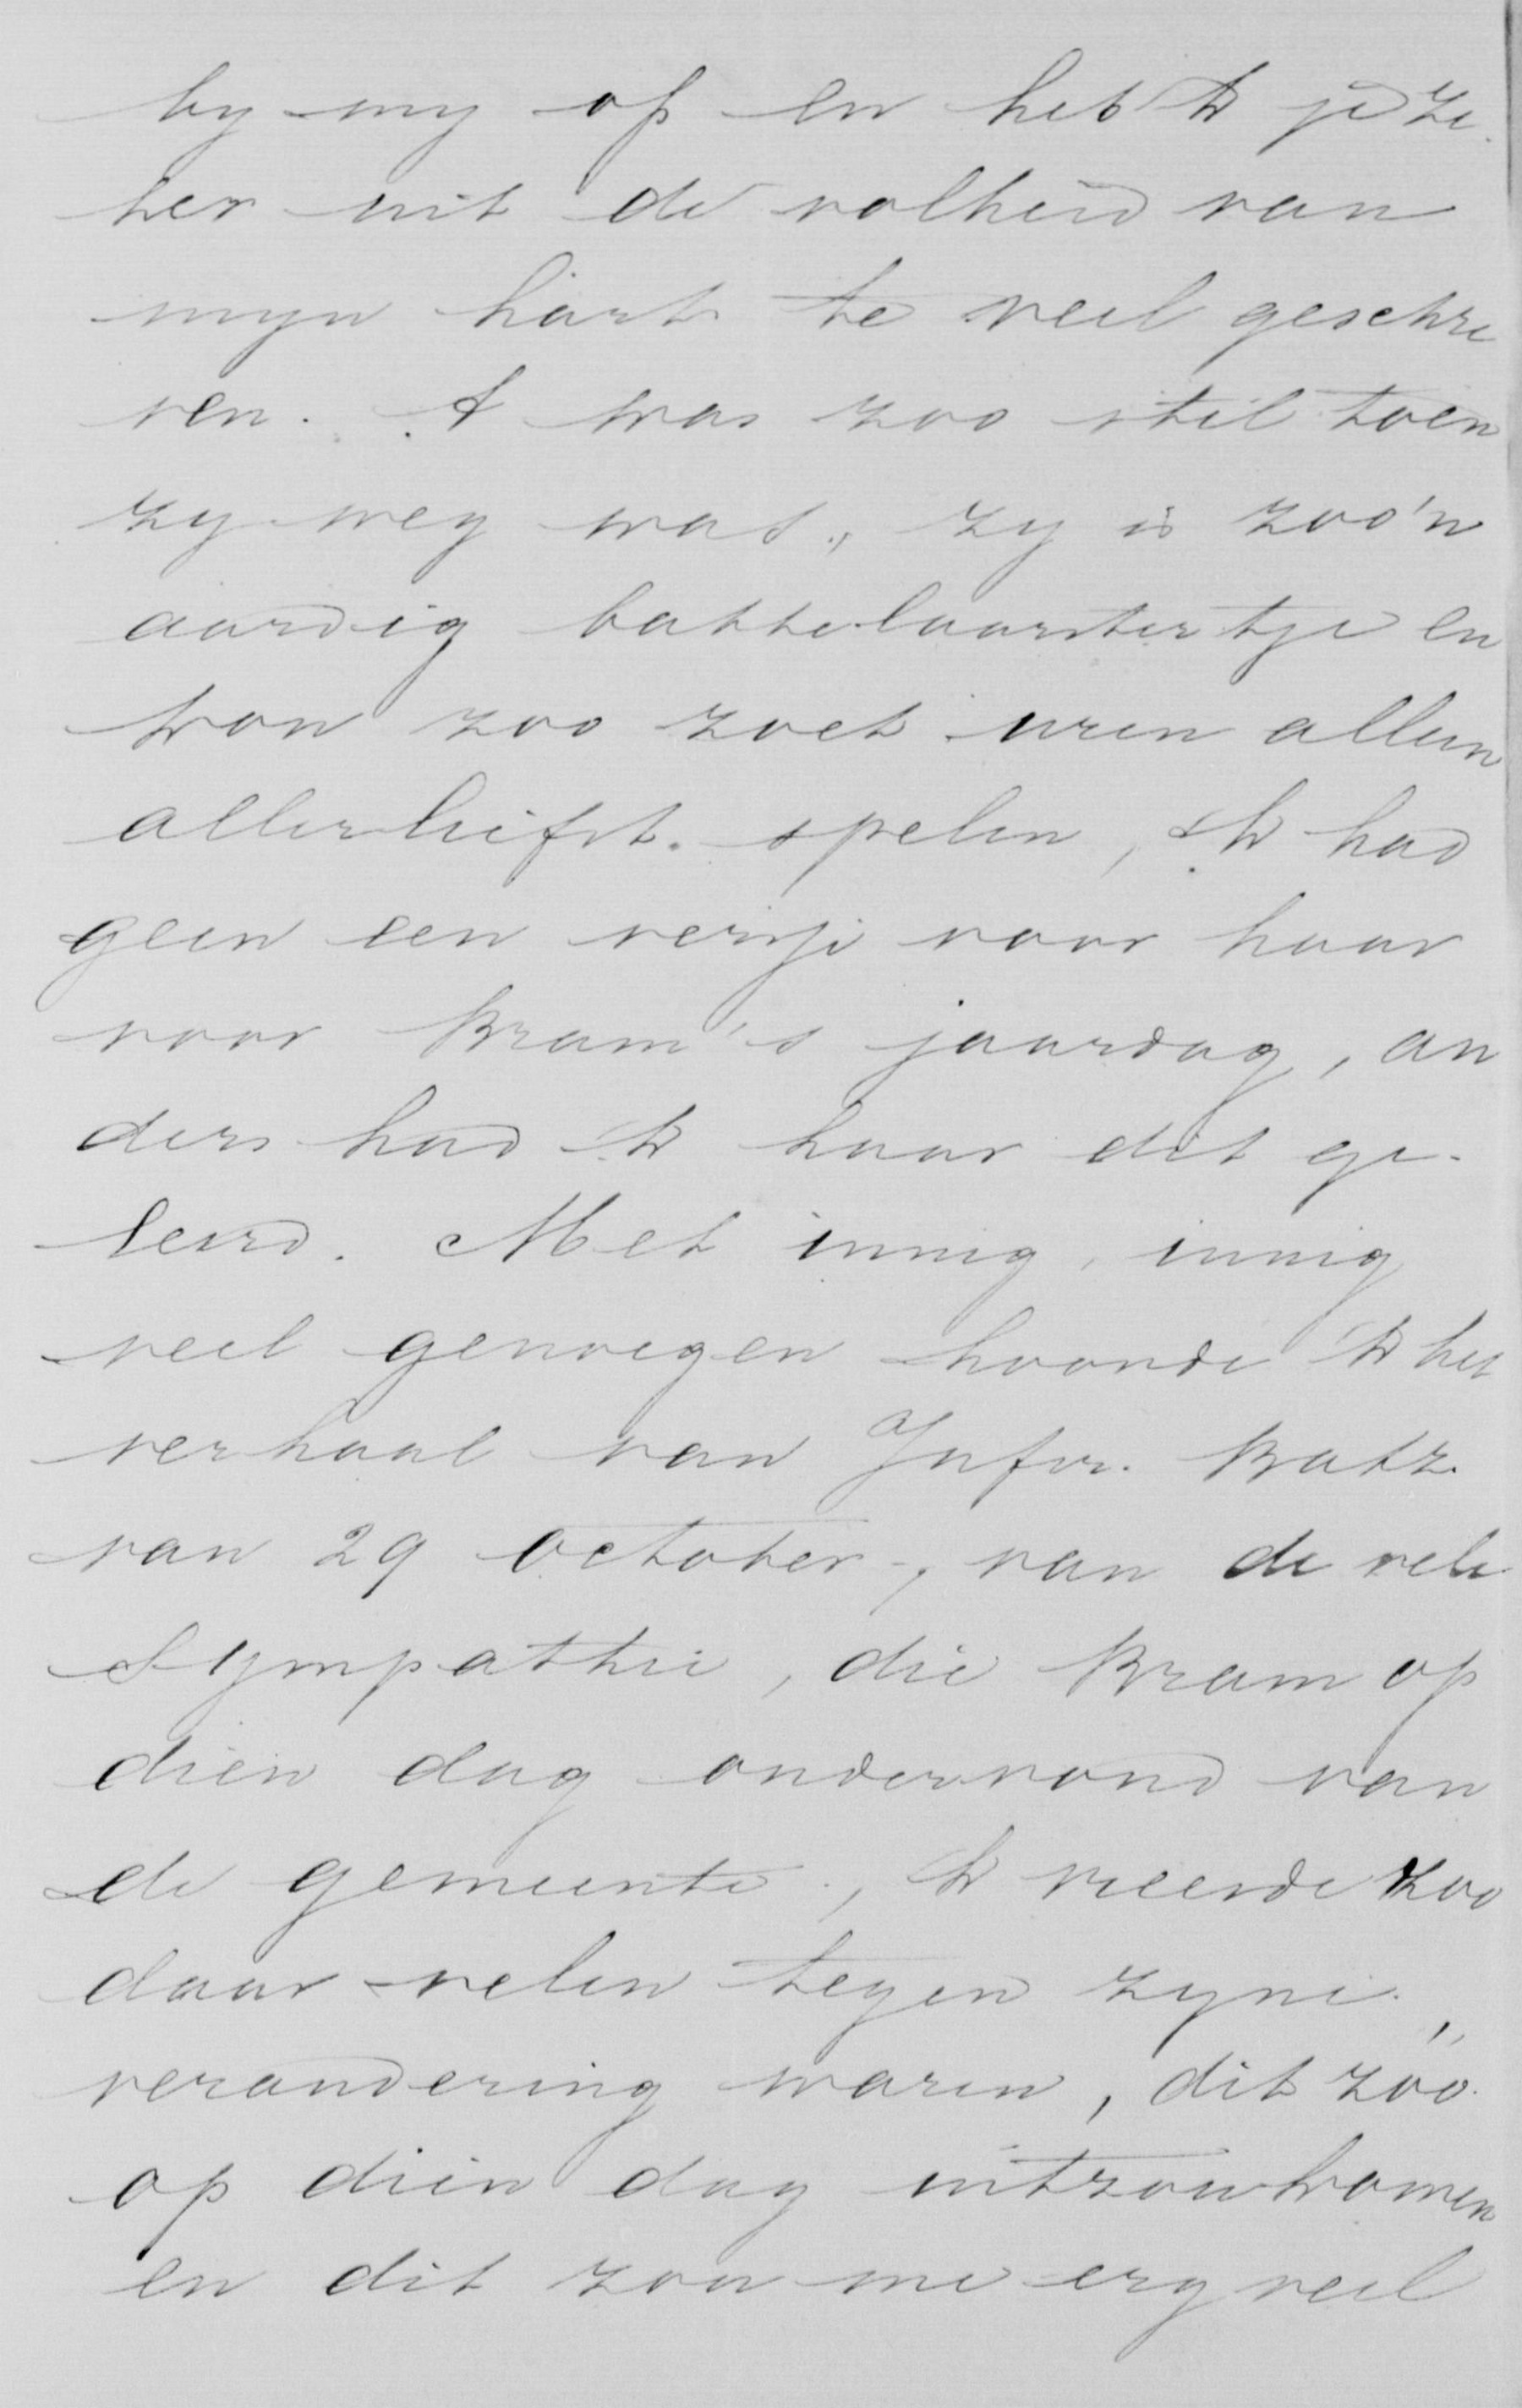 by my op en heb ik je ze
ker uit de volheid van
myn hart te veel geschre
ven. 't was zoo stil toen
zy weg was, zy is zoo'n
aardig babbelaarstertje en
kon zoo zoet uren alleen
allerliefst spelen, ik had
geen een versje voor haar
voor Bram's jaardag, an
ders had ik haar dit ge-
leerd. Met innig, innig
veel genoegen hoorde ik het
verhaal van Jufvr. Batz
van 29 October, van de vele
Sympathie, die Bram op
dien dag ondervond van
de gemeente, ik vreesde zoo
daar velen tegen zyne
verandering waren, dit zóó
op dien dag uitzou komen
en dit zou me erg veel